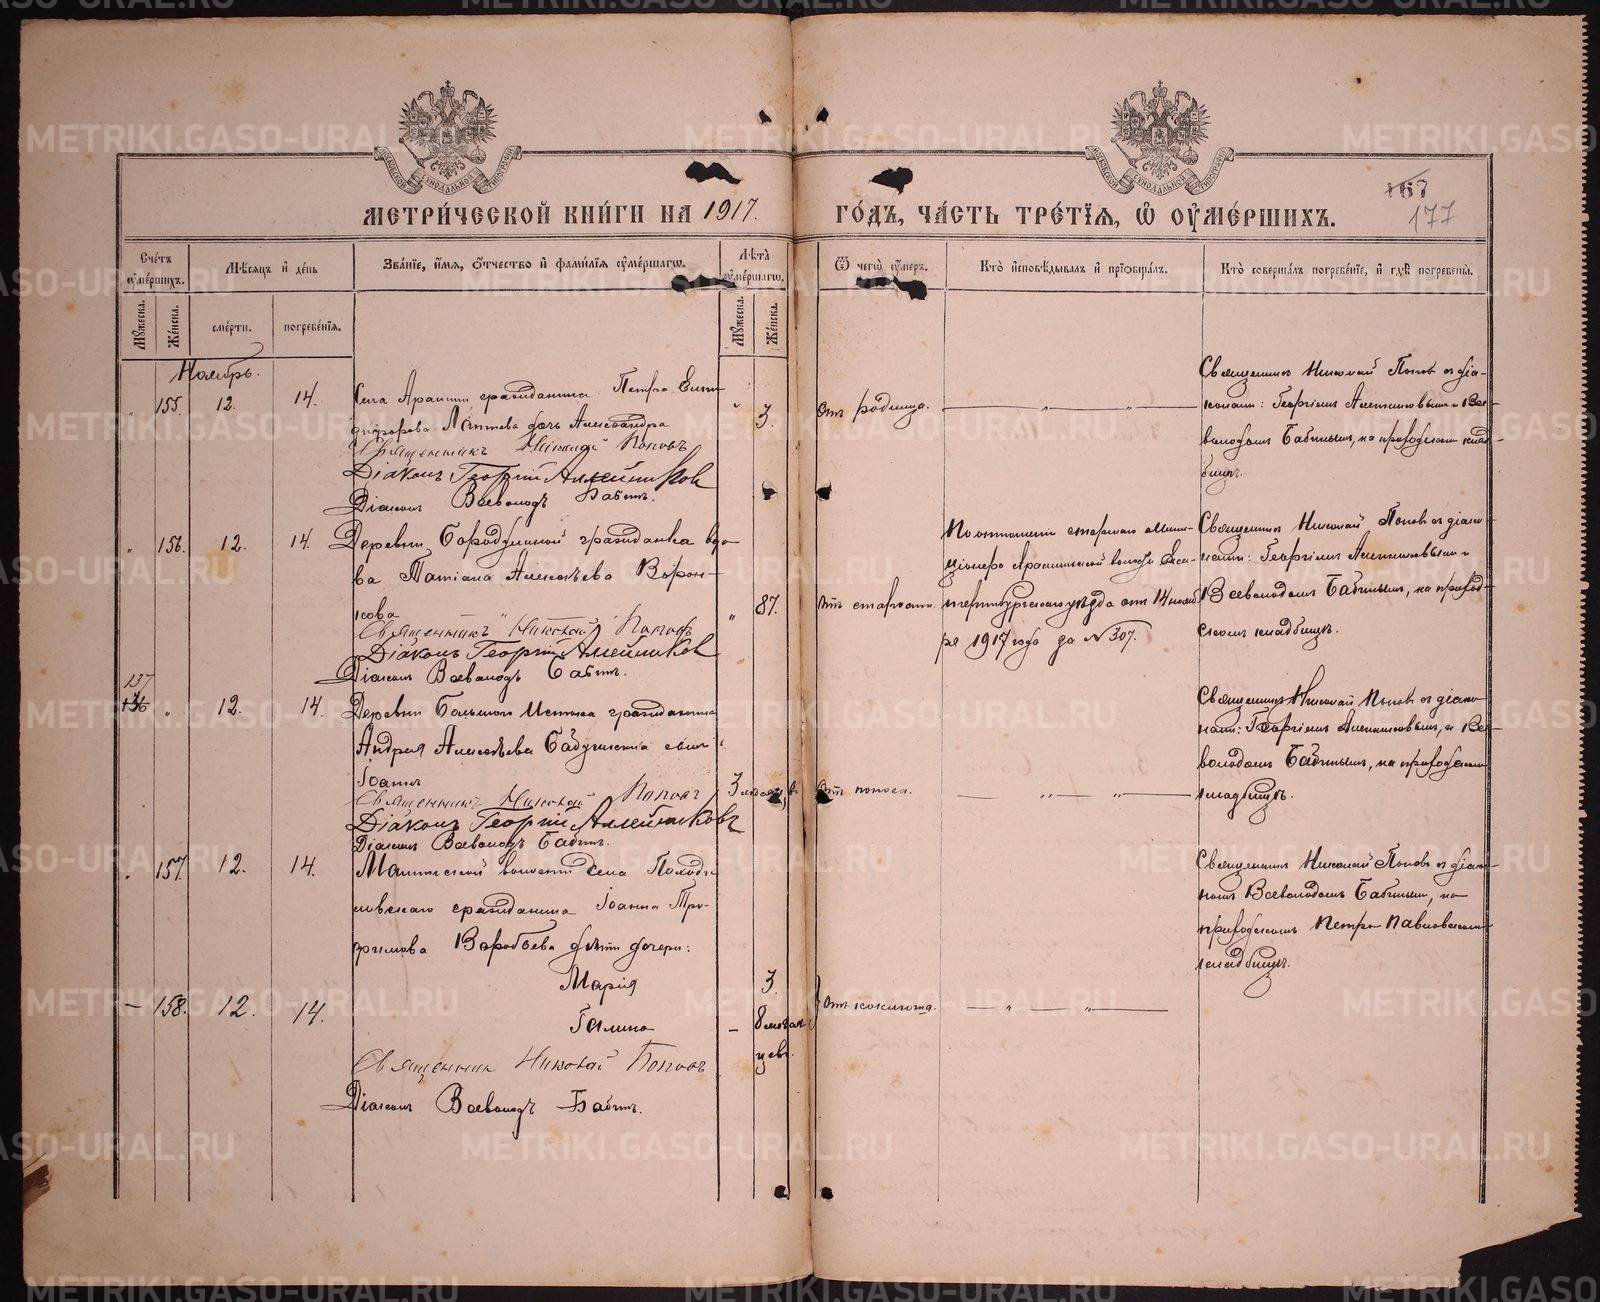 МЕТРИЧЕСКОЙ КНИГИ НА 1917. ГОДЪ, ЧАСТЬ ТРЕТІЯ, Ѿ ОУМЕРШИХЪ.
167
177
Счетъ оумершихъ.
Мѣсяцъ и день
Званіе, имя, отчество и фамилія оумершагѡ.
Лѣта оумершагѡ.
Ѿ чегѡ оумеръ.
Кто исповѣдывалъ и пріобщалъ.
Кто совершалъ погребеніе, и гдѣ погребены.
Мужеска.
Женска.
смерти.
погребенія.
Мужеска.
Женска.
Ноябрь.
" 155. 12. 14.
Села Арамили гражданина Петра Ники-
форова Лаптева дочь Александра
Священникъ Николай Поповъ
Діаконъ Георгій Алейниковъ
Діаконъ Всеволодъ Бабинъ.
" 3.
Отъ родимца.
Священникъ Николай Поповъ съ діа-
конами: Георгіемъ Алейниковымъ и Все-
володомъ Бабинымъ, на приходскомъ клад-
бищѣ.
" 156. 12. 14.
Деревни Бородулиной гражданка вдо-
ва Татіана Алексѣева Ворон-
кова
Священникъ Николай Поповъ
Діаконъ Георгій Алейниковъ
Діаконъ Всеволодъ Бабинъ.
" 87.
Отъ старости.
По отношенію старшаго мили-
ціонера Арамильской волости Ека-
теринбургскаго уѣзда отъ 14 нояб-
ря 1917 года за № 307.
Священникъ Николай Поповъ съ діако-
нами: Георгіемъ Алейниковымъ и
Всеволодомъ Бабинымъ, на приход-
скомъ кладбищѣ.
137
136 " 12. 14.
Деревни Большого Истока гражданина
Андрея Алексѣева сынъ
Іоаннъ
Священникъ Николай Поповъ
Діаконъ Георгій Алейниковъ
Діаконъ Всеволодъ Бабинъ.
3 мѣсяцевъ
Отъ поноса.
Священникъ Николай Поповъ съ діако-
нами: Георгіемъ Алейниковымъ, и Все-
володомъ Бабинымъ, на приходскомъ
кладбищѣ.
" 157. 12. 14.
волости села
гражданина Іоанна Тро-
фимова Воробьева дѣти дочери:
Марія
3.
Священникъ Николай Поповъ съ діако-
номъ Всеволодомъ Бабинымъ, на
приходскомъ Петро-Павловскомъ
кладбищѣ.
— 158. 12. 14.
Галина
— 8 мѣсяцевъ.
Отъ коклюша.
Священникъ Николай Поповъ
Діаконъ Всеволодъ Бабинъ.
METRIKI.GASO-URAL.RU